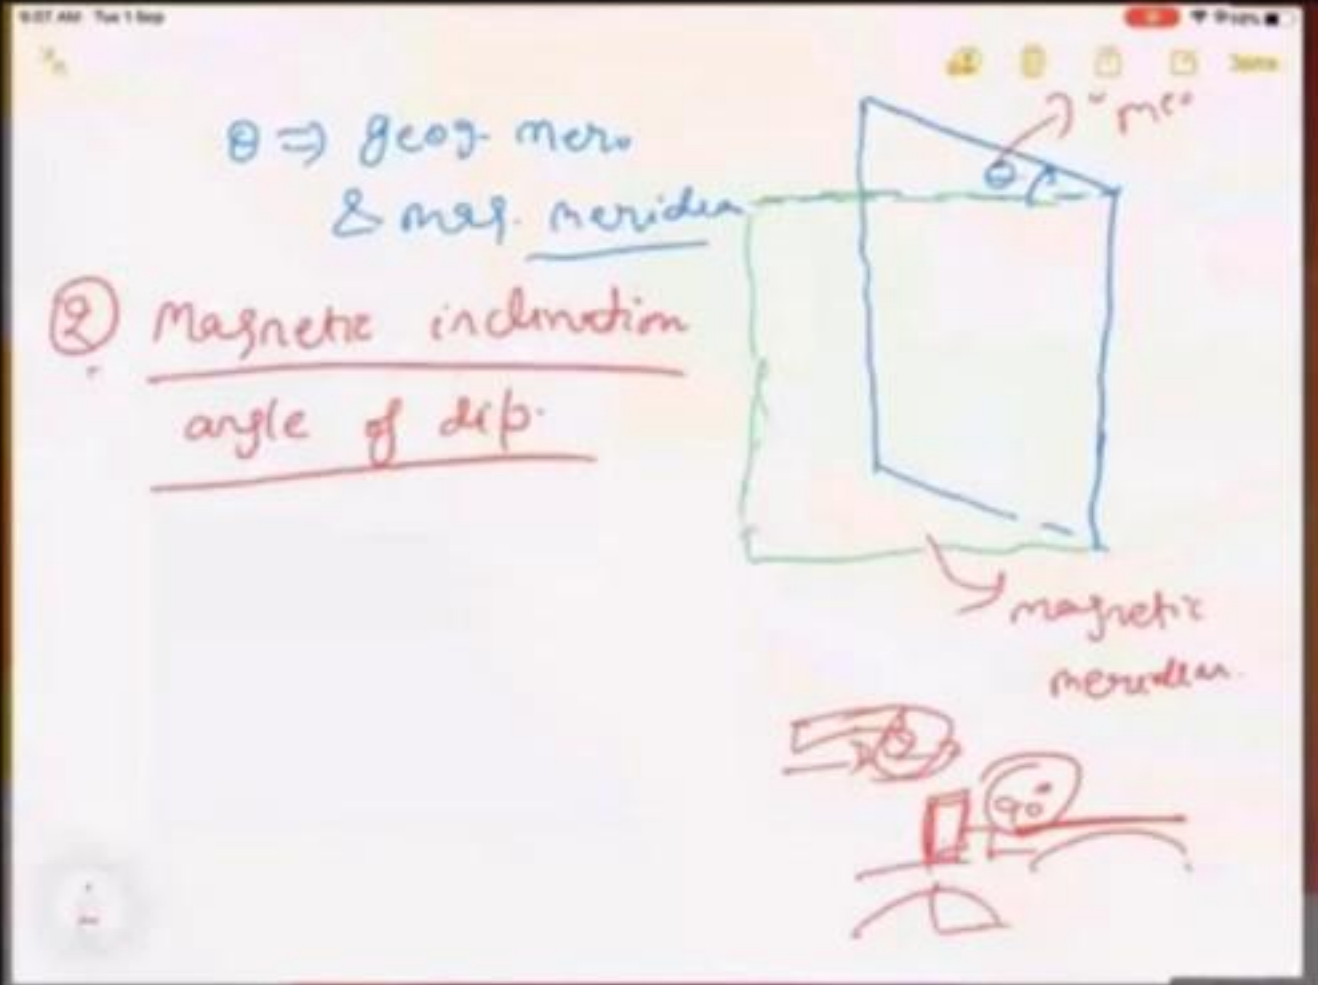 9:07 AM Tue 1 Sep
θ ⇒ geog. mer.
& mag. meridian
θ
② Magnetic inclination
angle of dip.
magnetic
meridian.
90°